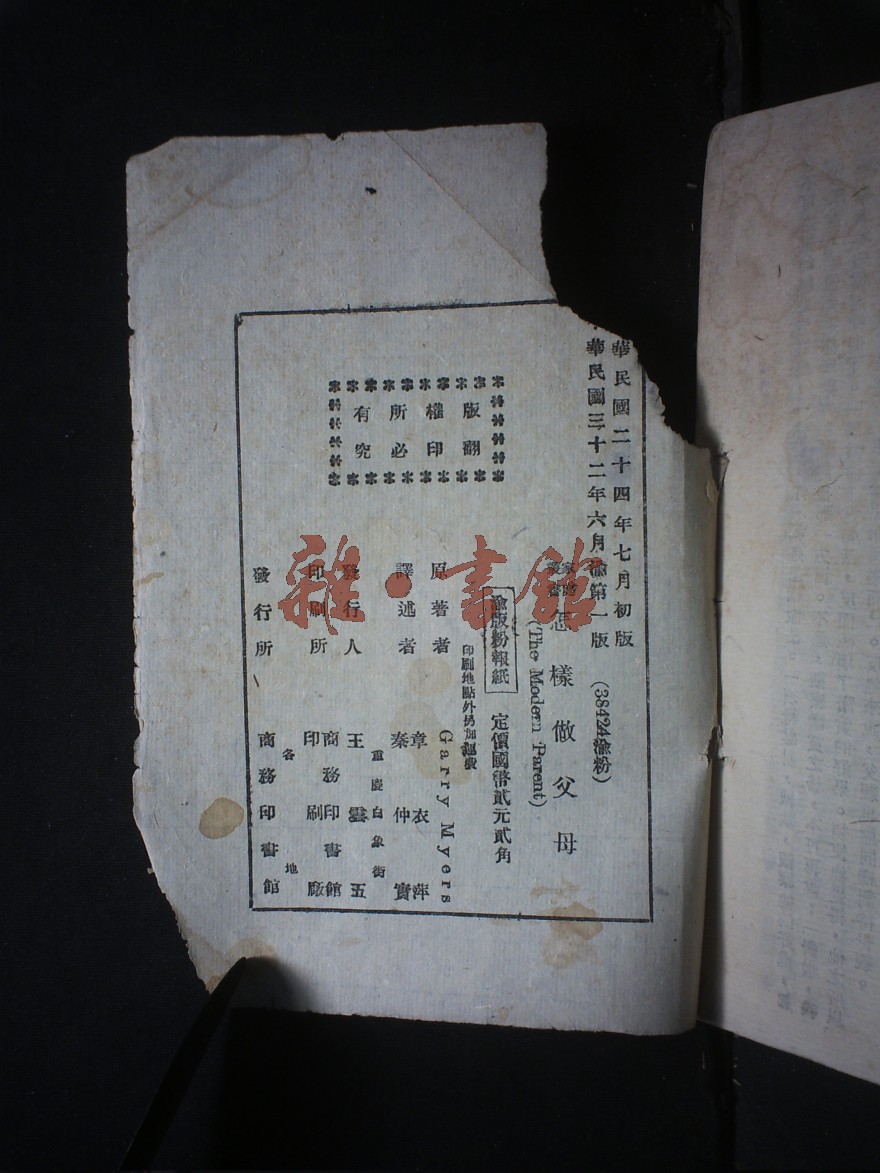 華民國二十四年七月初版
華民國三十二年六月渝第一版
(38424渝粉)
怎樣做父母
(The Modern Parent)
渝版粉報紙 定價國幣貳元貳角
印刷地點外另加運費
版權所有
翻印必究
原著者 Garry Myers
譯述者 章衣萍
秦仲實
發行人 王雲五
重慶白象街
印刷所 商務印書館
印刷廠
發行所 各地
商務印書館
雜·書館